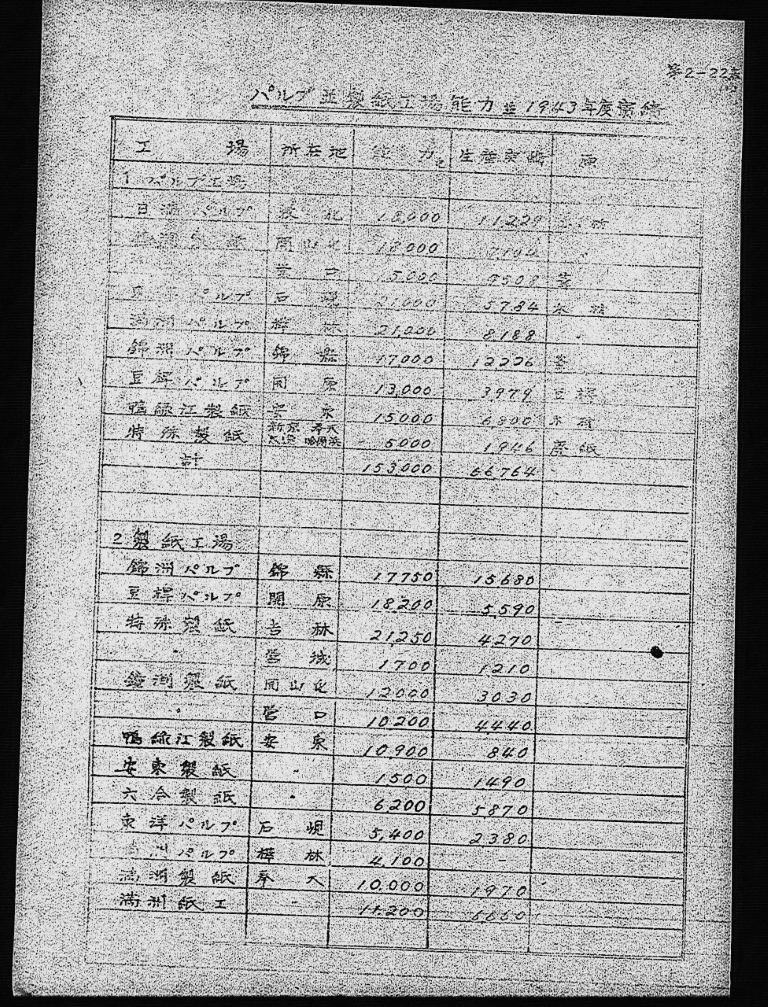 第2-22表
パルプ並製紙工場能力並1943年度実績
工 場 所在地 能 力 生産実績 原
1 パルプ工場
日満パルプ 敦 化 18,000 11,229 木 材
開山屯 18,000
営 口 15,000 9508 葦
パルプ 石 峴 21,000 5784 木 材
満洲パルプ 樺 林 21,000 8188 〃
錦洲パルプ 錦 縣 17,000 12226 葦
豆稈パルプ 開 原 13,000 3979 豆稈
鴨緑江製紙 安 東 15,000 6800 木材
特殊製紙 新京 奉天 大連 哈爾浜 5000 1946 廃紙
計 153,000 66764
2 製紙工場
錦洲パルプ 錦 縣 17750 15680
豆稈パルプ 開 原 18,200 5,590
特殊製紙 吉 林 21,250 4270
〃 營 城 1700 1210
鐘渕製紙 開山屯 12000 3030
〃 営 口 10,200 4440
鴨緑江製紙 安 東 10,900 840
安東製紙 〃 1500 1490
六合製紙 〃 6,200 5870
東洋パルプ 石 峴 5,400 2380
洲パルプ 樺 林 4,100 -
満洲製紙 奉 天 10,000 1970
満洲紙工 〃 11,200